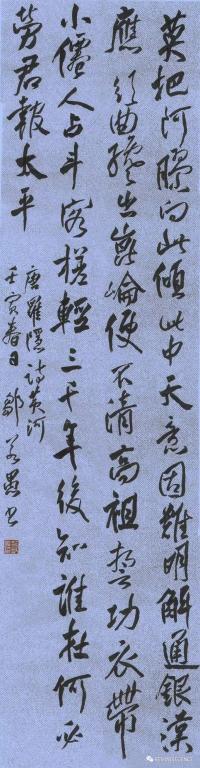 莫把阿膠向此傾此中天意固難明解通銀漢
應須曲纔出崑崙便不清高祖誓功衣帶
小僊人占斗客槎輕三千年後知誰在何必
勞君報太平
唐羅隱詩黃河
壬寅春日鄒